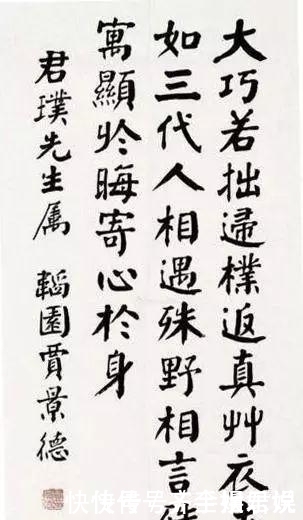 大巧若拙歸樸返真艸衣
如三代人相遇殊野相言
寓顯於晦寄心於身
君璞先生属 韜園賈景德